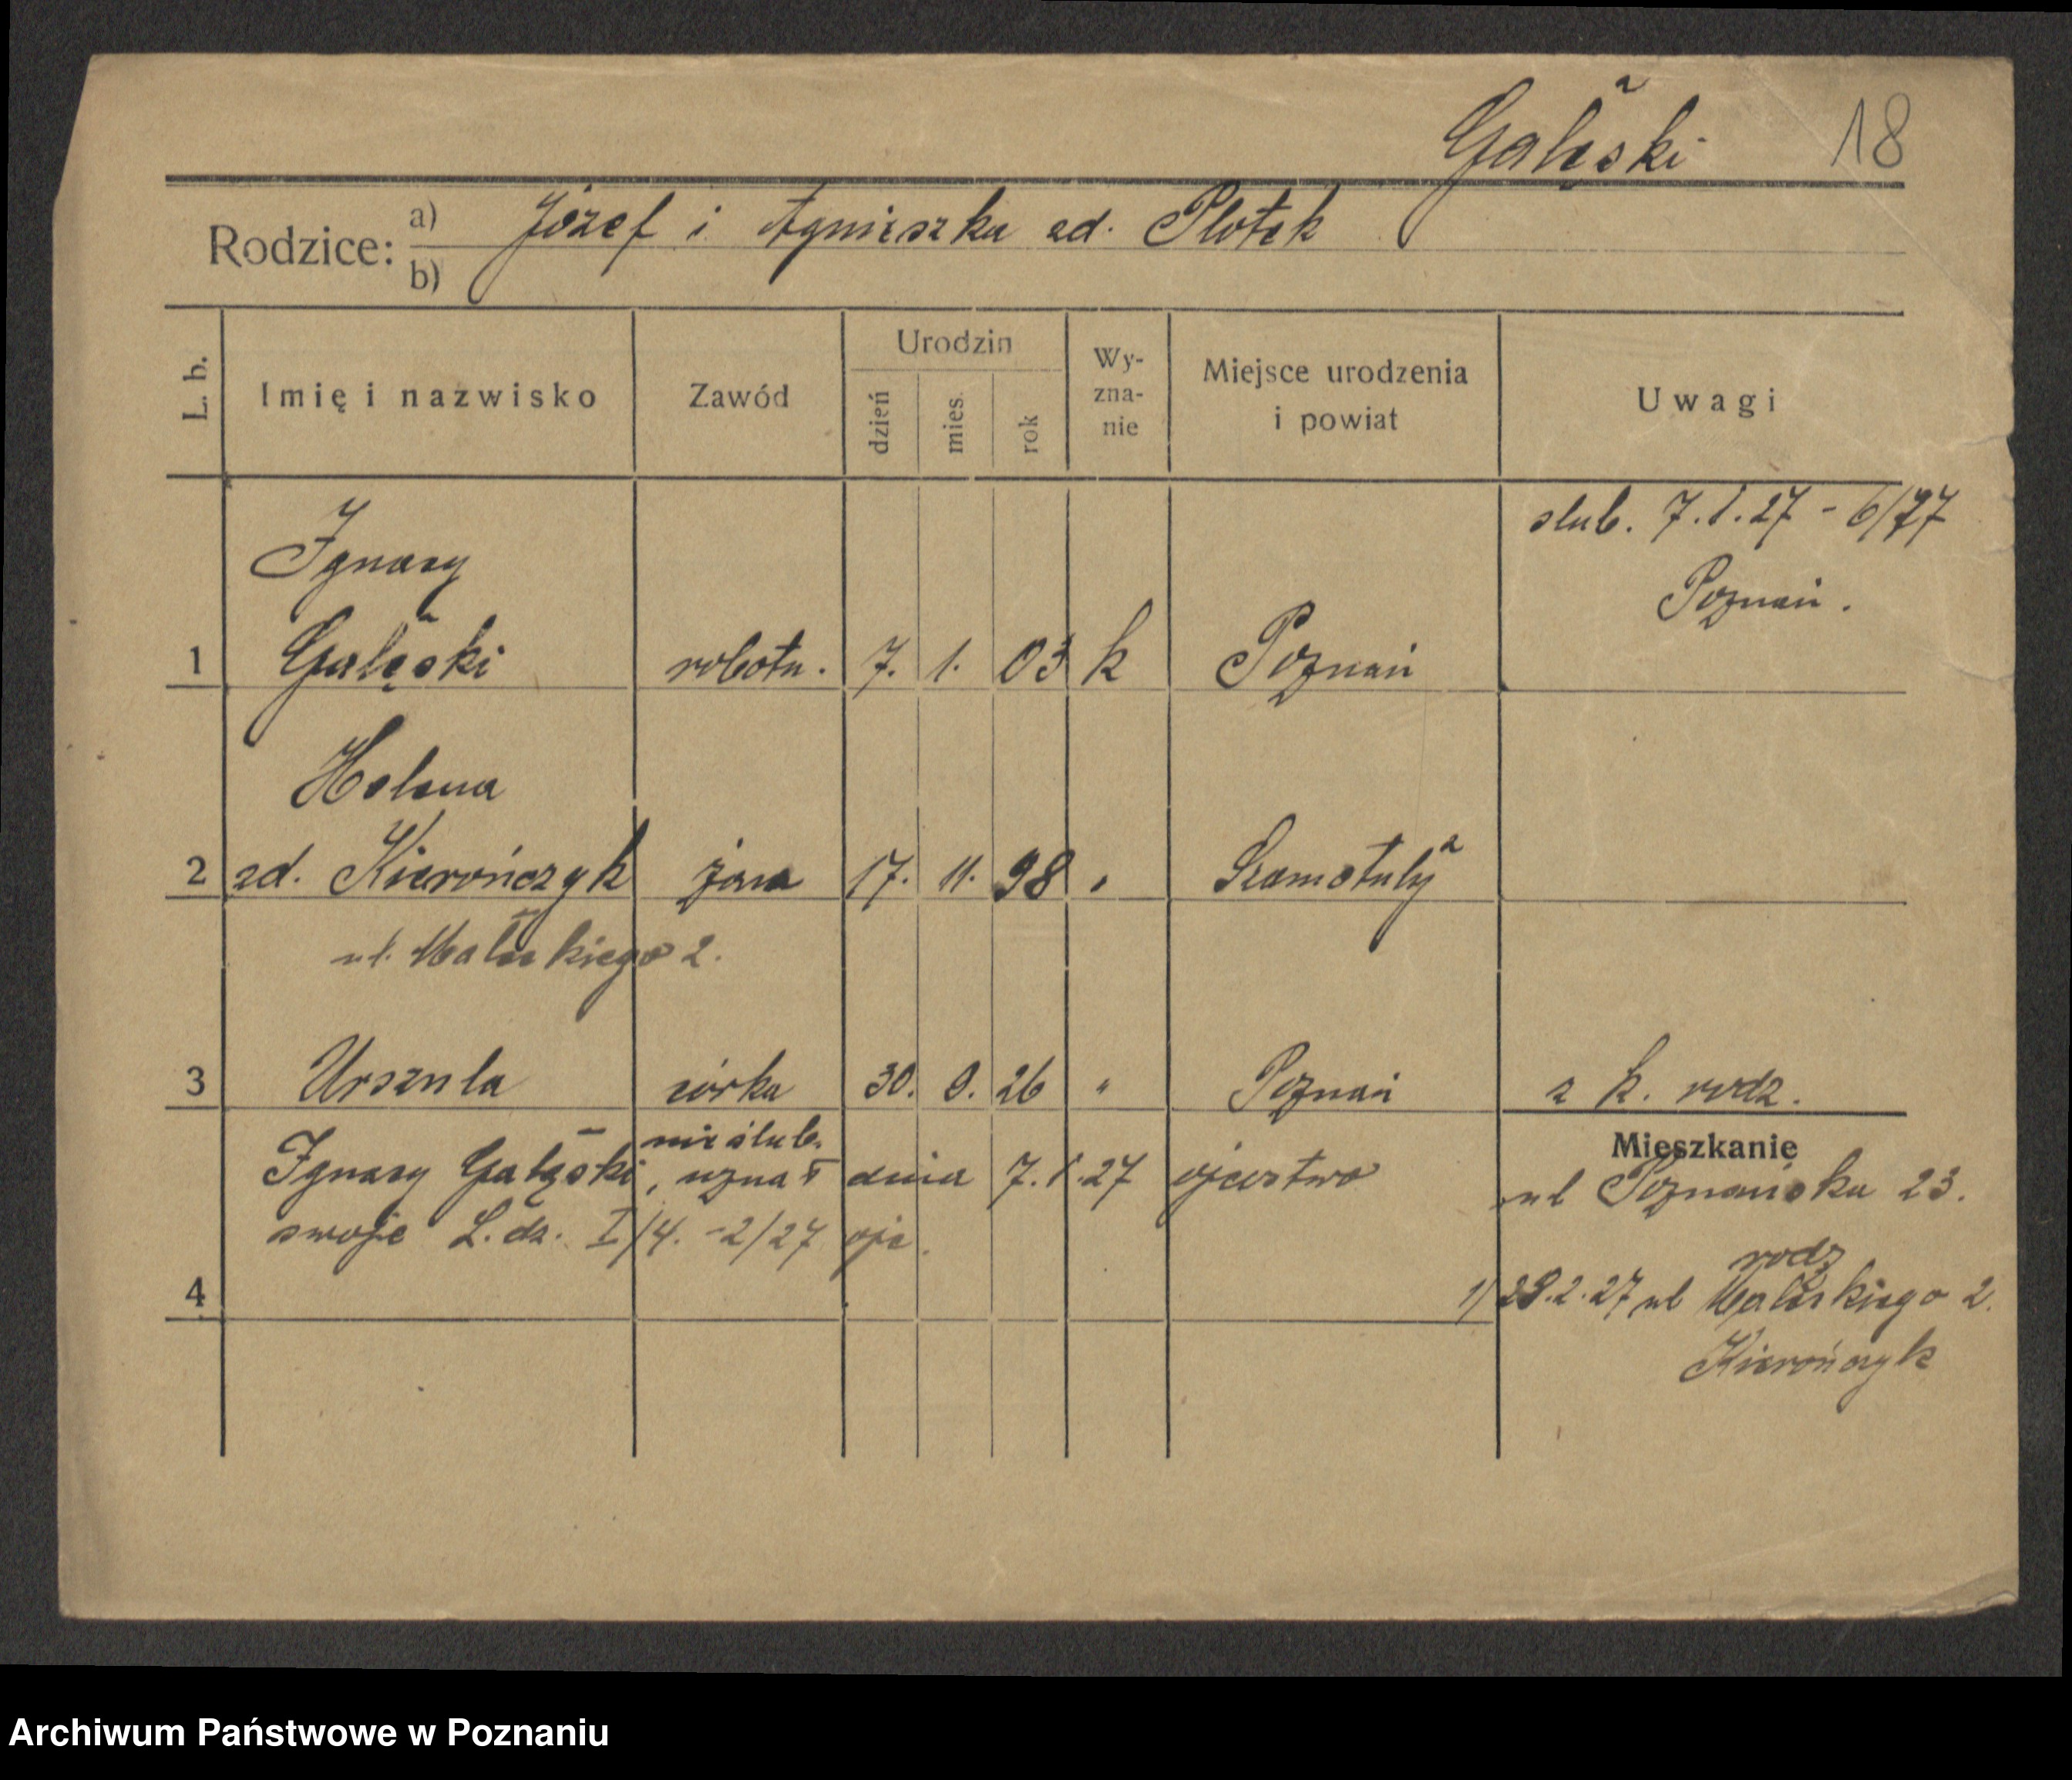 Gałęski 18
Rodzice: a) b) Józef i Agnieszka zd. Płotek
L. b. Imię i nazwisko Zawód Urodzin dzień mies. rok Wy-zna-nie Miejsce urodzenia i powiat Uwagi
ślub. 7.1.27 - 6/27
Poznań.
Ignacy
1 Gałęski robotn. 7. 1. 03 k Poznań
Helena
2 zd. Kierończyk żona 17. 11. 98 " Szamotuły
ul. Małeckiego 2.
3 Urszula córka 30. 26 " Poznań z k. rodz.
nieślub. Mieszkanie
Ignacy Gałęski, uznał dnia 7.1.27 ojcostwo
ul Poznańska 23.
swoje L. dz. I/4. -2/27 ojc.
rodz
4 1) 28.2.27 ul Małeckiego 2.
Kierończyk
Archiwum Państwowe w Poznaniu